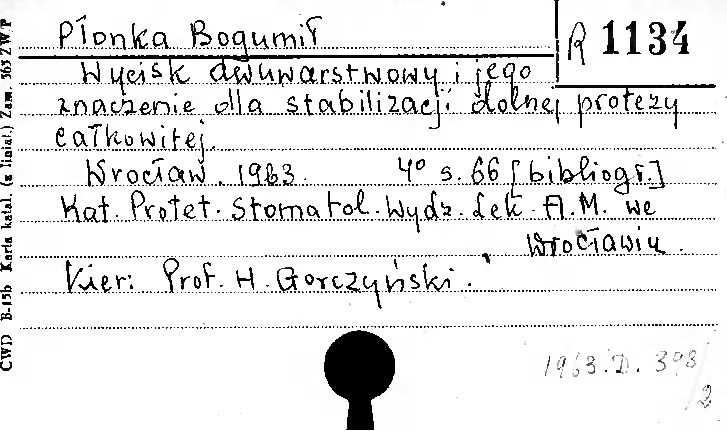 Płonka Bogumił
R 1134
Wycisk dwuwarstwowy i jego
znaczenie dla stabilizacji dolnej protezy
całkowitej.
Wrocław. 1963. 4° s. 66 [bibliogr.]
Kat. Protet. Stomatol. Wydz. Lek. A.M. we
Wrocławiu.
Kier: Prof. H. Gorczyński.
1963.D.393/2
CWD B-15b Karta katal. (z liniat.) Zam. 363 ZWP